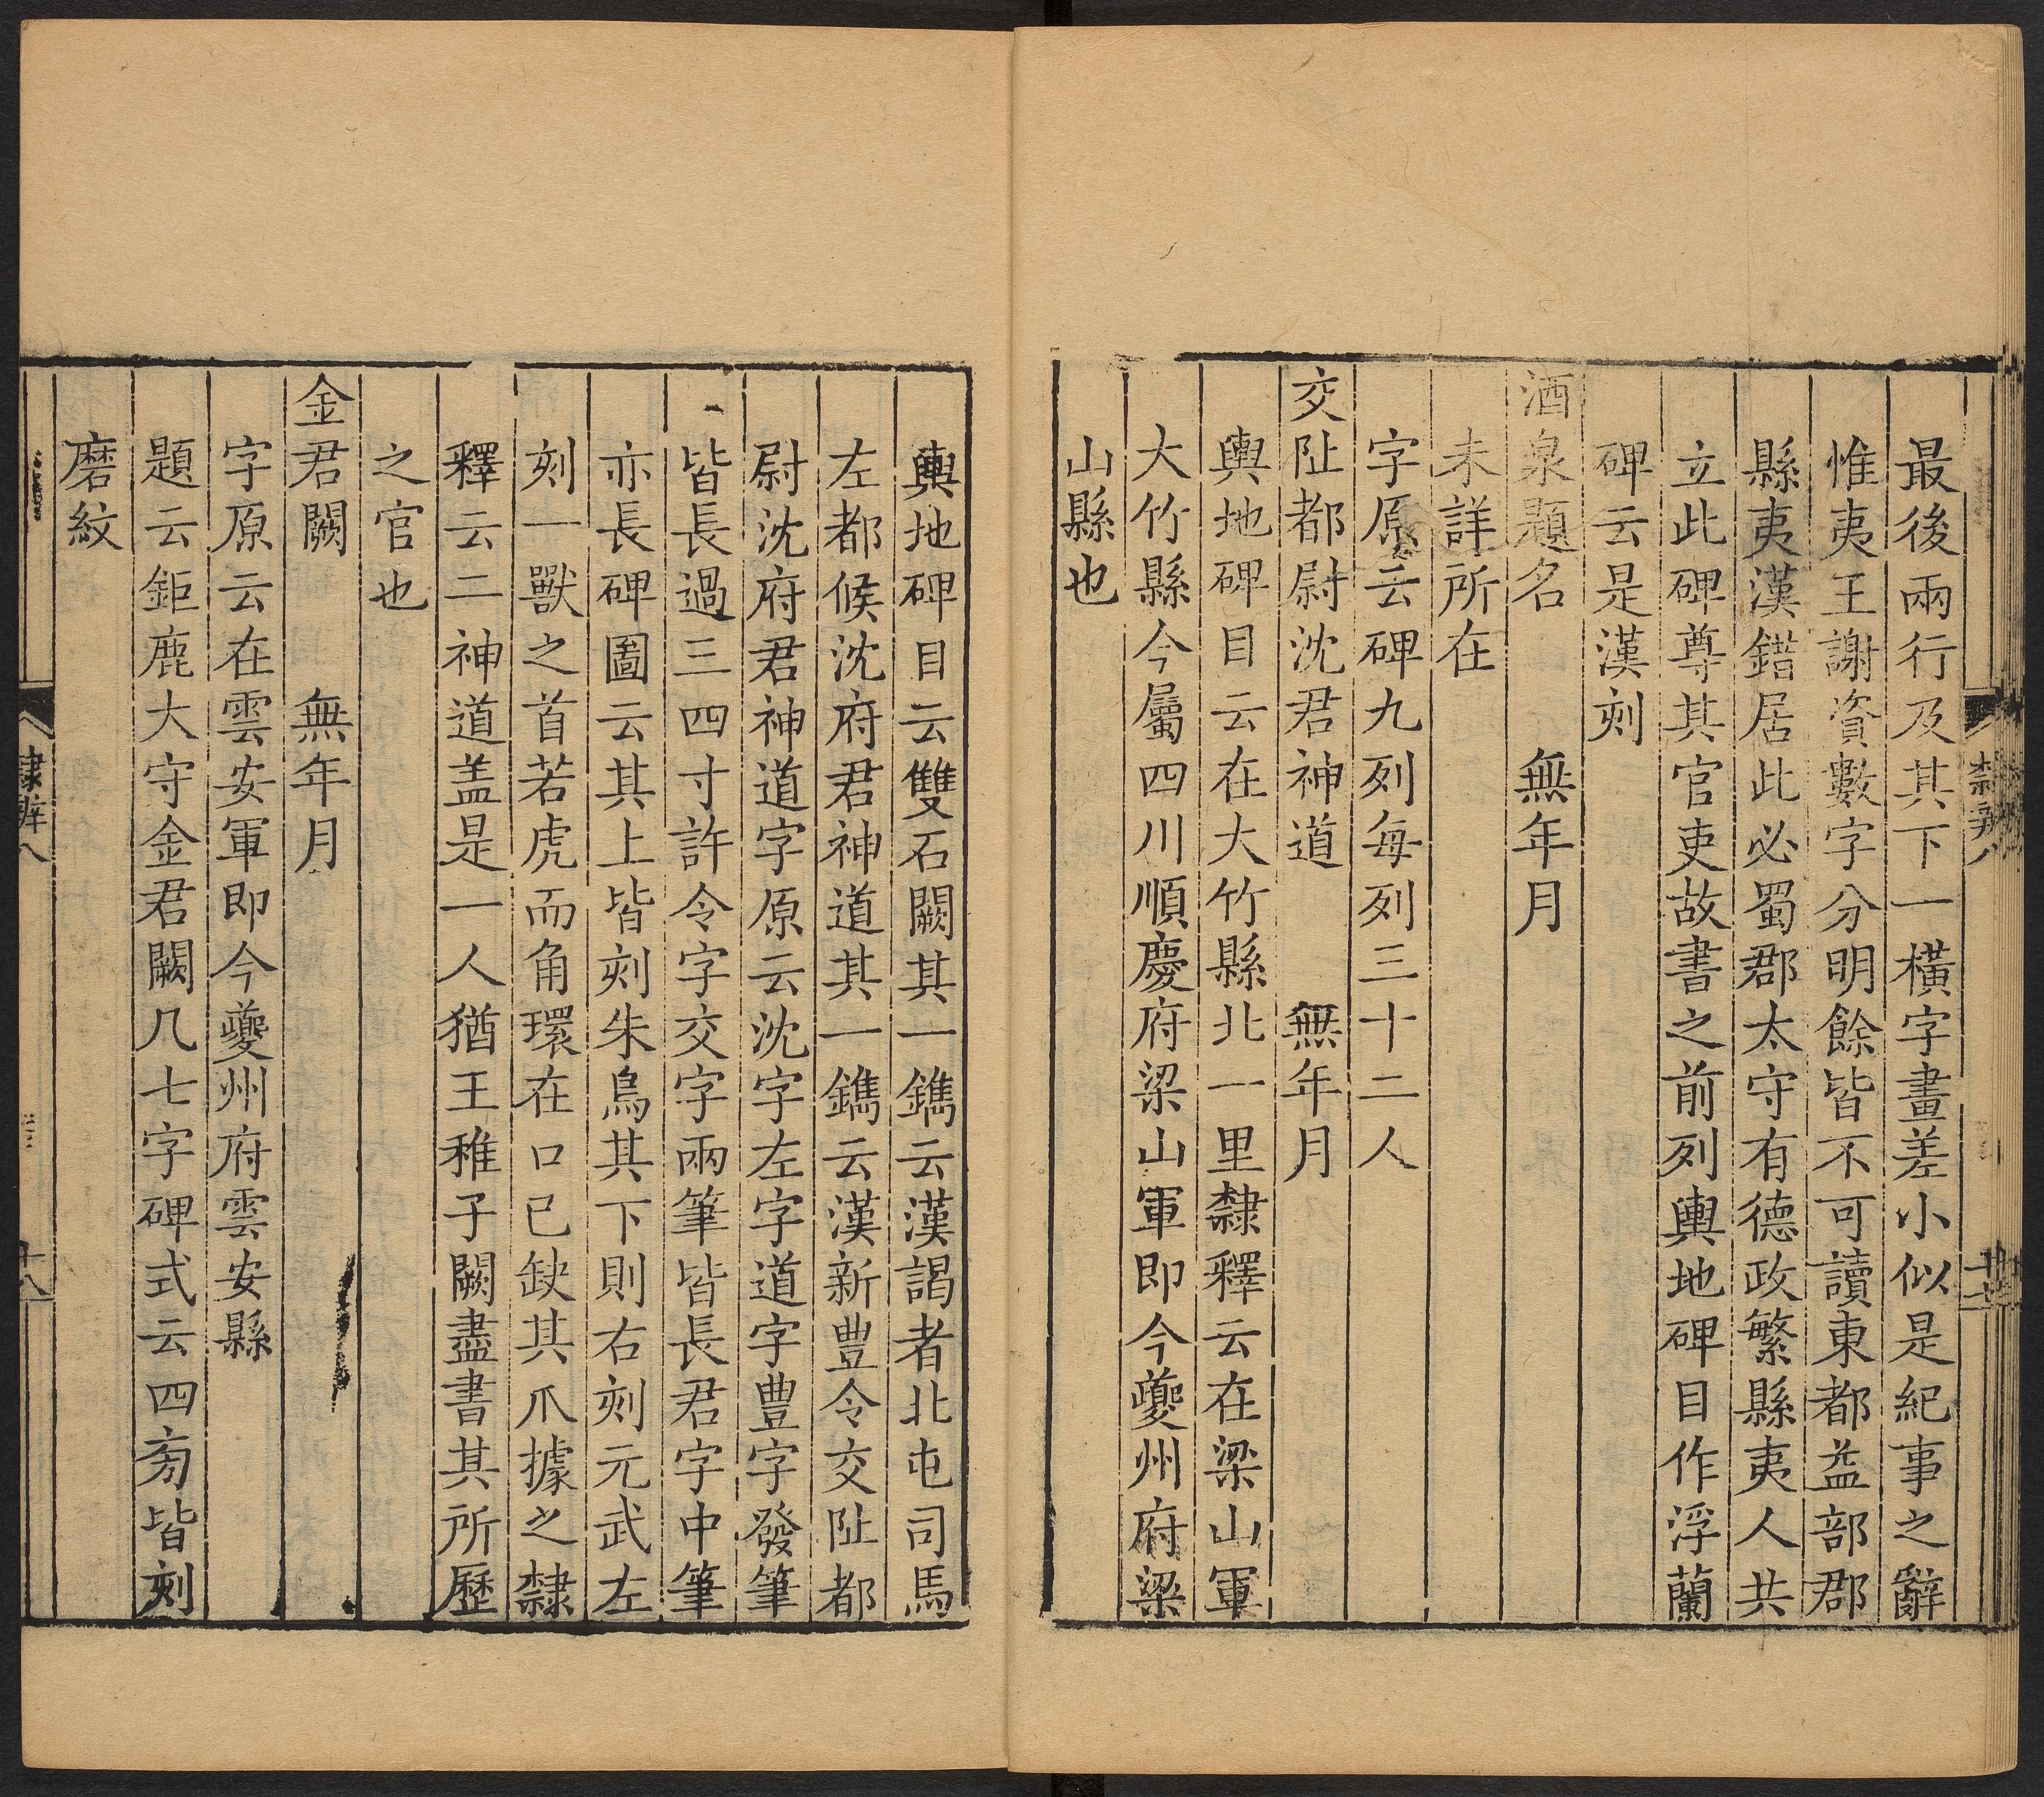 最後兩行及其下一橫字畫差小似是紀事之辭
惟夷王謝資數字分明餘皆不可讀東都益部郡
縣夷漢錯居此必蜀郡太守有德政繁縣夷人共
立此碑尊其官吏故書之前列輿地碑目作浮蘭
碑云是漢刻
酒泉題名 無年月
未詳所在
字原云碑九列每列三十二人
交阯都尉沈君神道 無年月
輿地碑目云在大竹縣北一里隸釋云在梁山軍
大竹縣今屬四川順慶府梁山軍即今夔州府梁
山縣也
輿地碑目云雙石闕其一鐫云漢謁者北屯司馬
左都候沈府君神道其一鐫云漢新豊令交阯都
尉沈府君神道字原云沈字左字道字豊字發筆
皆長過三四寸許令字交字兩筆皆長君字中筆
亦長碑圖云其上皆刻朱鳥其下則右刻元武左
刻一獸之首若虎而角環在口已缺其爪據之隸
釋云二神道盖是一人猶王稚子闕盡書其所歷
之官也
金君闕 無年月
字原云在雲安軍即今夔州府雲安縣
題云鉅鹿大守金君闕凡七字碑式云四旁皆刻
磨紋
隸辨八
十八